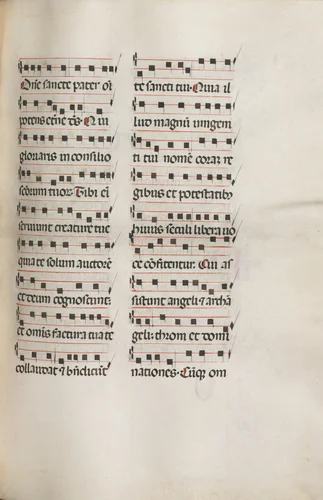 One sancte pater om
potens eterne ds. Qui
gloriaris in consilio
scōrum tuor. Tibi eī
seruiunt creature tue
quia te solum auctorē
et deum cognoscunt:
et omīs factura tua te
collaudat ⁊ bn̄dicūt
te sancti tui. Quia il
lud magnū unigeni
ti tui nomē coram re
gibus et potestatib
huius seculi libera uo
ce cōfitentur. Cui as
sistunt angeli ⁊ archā
geli: throni et domi
nationes. Cūq̄ om